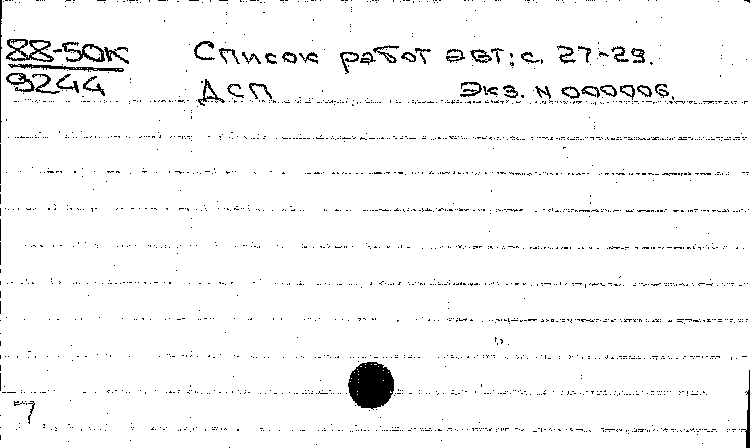 88-50К Список работ авт: с. 27-29.
9244 ДСП Экз. N 000006.
7